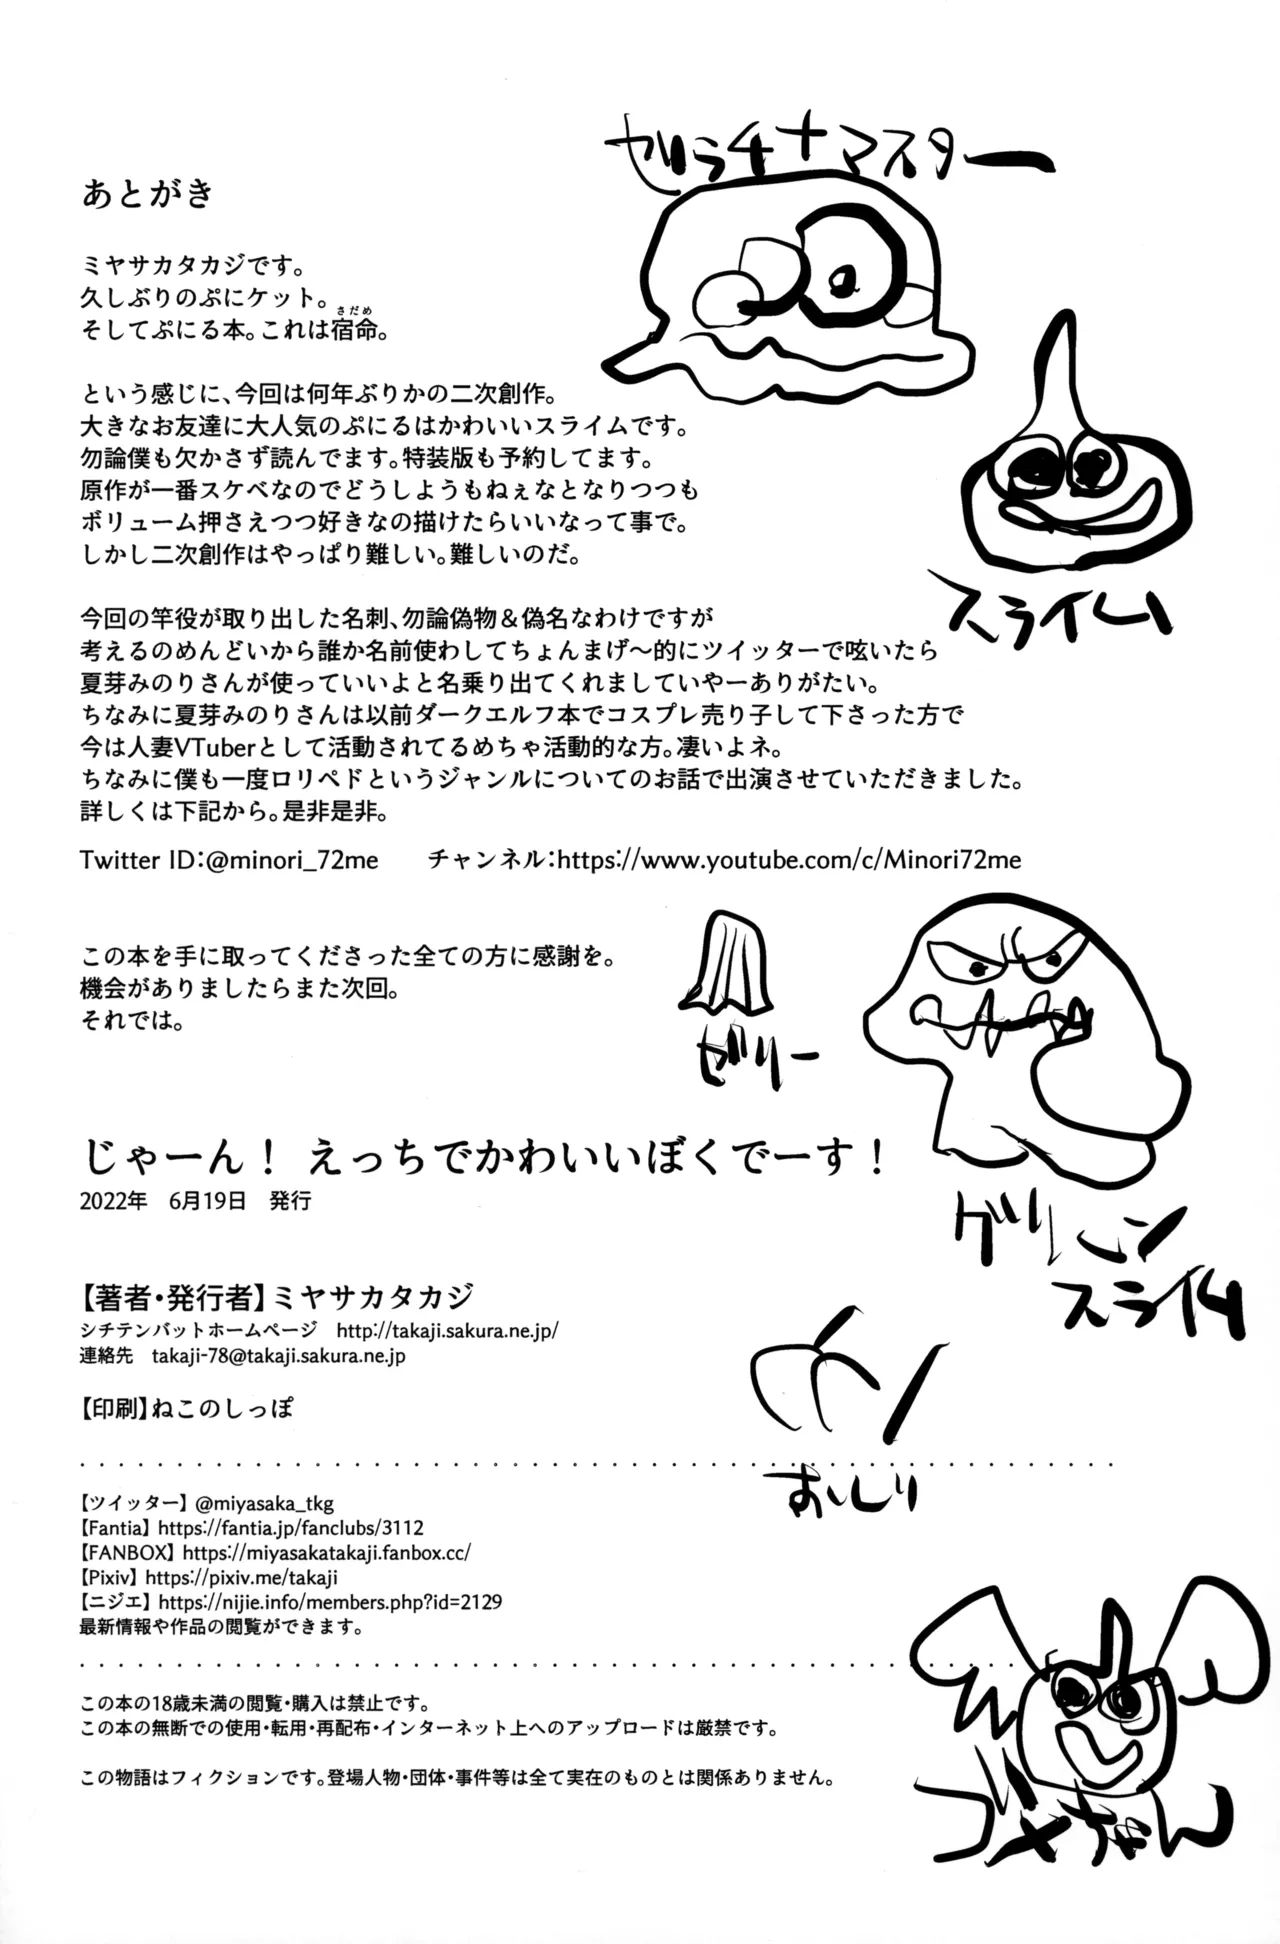 ゼラチナマスター
あとがき
ミヤサカタカジです。
久しぶりのぷにケット。
さだめ
そしてぷにる本。これは宿命。
という感じに、今回は何年ぶりかの二次創作。
大きなお友達に大人気のぷにるはかわいいスライムです。
勿論僕も欠かさず読んでます。特装版も予約してます。
原作が一番スケベなのでどうしようもねぇなとなりつつも
ボリューム押さえつつ好きなの描けたらいいなって事で。
しかし二次創作はやっぱり難しい。難しいのだ。
スライム
今回の竿役が取り出した名刺、勿論偽物＆偽名なわけですが
考えるのめんどいから誰か名前使わしてちょんまげ〜的にツイッターで呟いたら
夏芽みのりさんが使っていいよと名乗り出てくれましていやーありがたい。
ちなみに夏芽みのりさんは以前ダークエルフ本でコスプレ売り子して下さった方で
今は人妻VTuberとして活動されてるめちゃ活動的な方。凄いよネ。
ちなみに僕も一度ロリペドというジャンルについてのお話で出演させていただきました。
詳しくは下記から。是非是非。
Twitter ID：@minori_72me　　チャンネル：https://www.youtube.com/c/Minori72me
この本を手に取ってくださった全ての方に感謝を。
機会がありましたらまた次回。
それでは。
ゼリー
じゃーん！ えっちでかわいいぼくでーす！
2022年　6月19日　発行
グリーン
スライム
【著者・発行者】ミヤサカタカジ
シチテンバットホームページ　http://takaji.sakura.ne.jp/
連絡先　takaji-78@takaji.sakura.ne.jp
【印刷】ねこのしっぽ
おしり
【ツイッター】@miyasaka_tkg
【Fantia】https://fantia.jp/fanclubs/3112
【FANBOX】https://miyasakatakaji.fanbox.cc/
【Pixiv】https://pixiv.me/takaji
【ニジエ】https://nijie.info/members.php?id=2129
最新情報や作品の閲覧ができます。
この本の18歳未満の閲覧・購入は禁止です。
この本の無断での使用・転用・再配布・インターネット上へのアップロードは厳禁です。
この物語はフィクションです。登場人物・団体・事件等は全て実在のものとは関係ありません。
ゴメちゃん